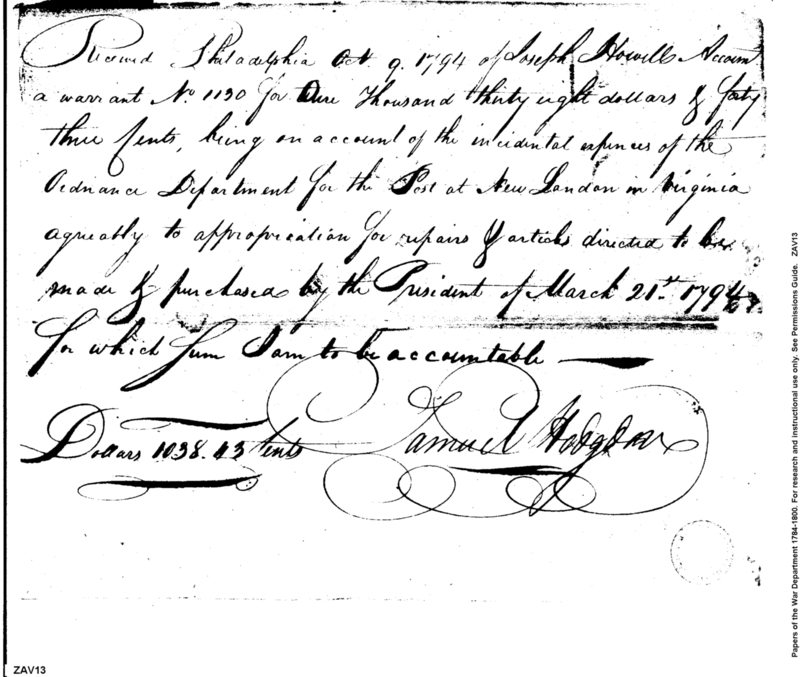 Received Philadelphia Oct. 9. 1794 of Joseph Howell Accoun
a warrant No. 1130 for One Thousand thirty eight dollars & forty
three Cents, being on account of the incidental expences of the
Ordnance Department for the Post at New London in Virginia
agreably to appropriation for repairs & articles directed to be
made & purchased by the President of March 21st. 1794
for which Sum I am to be accountable
Dollars 1038. 43 Cents
Samuel Hodgdon
ZAV13
Papers of the War Department 1784-1800. For research and instructional use only. See Permissions Guide. ZAV13